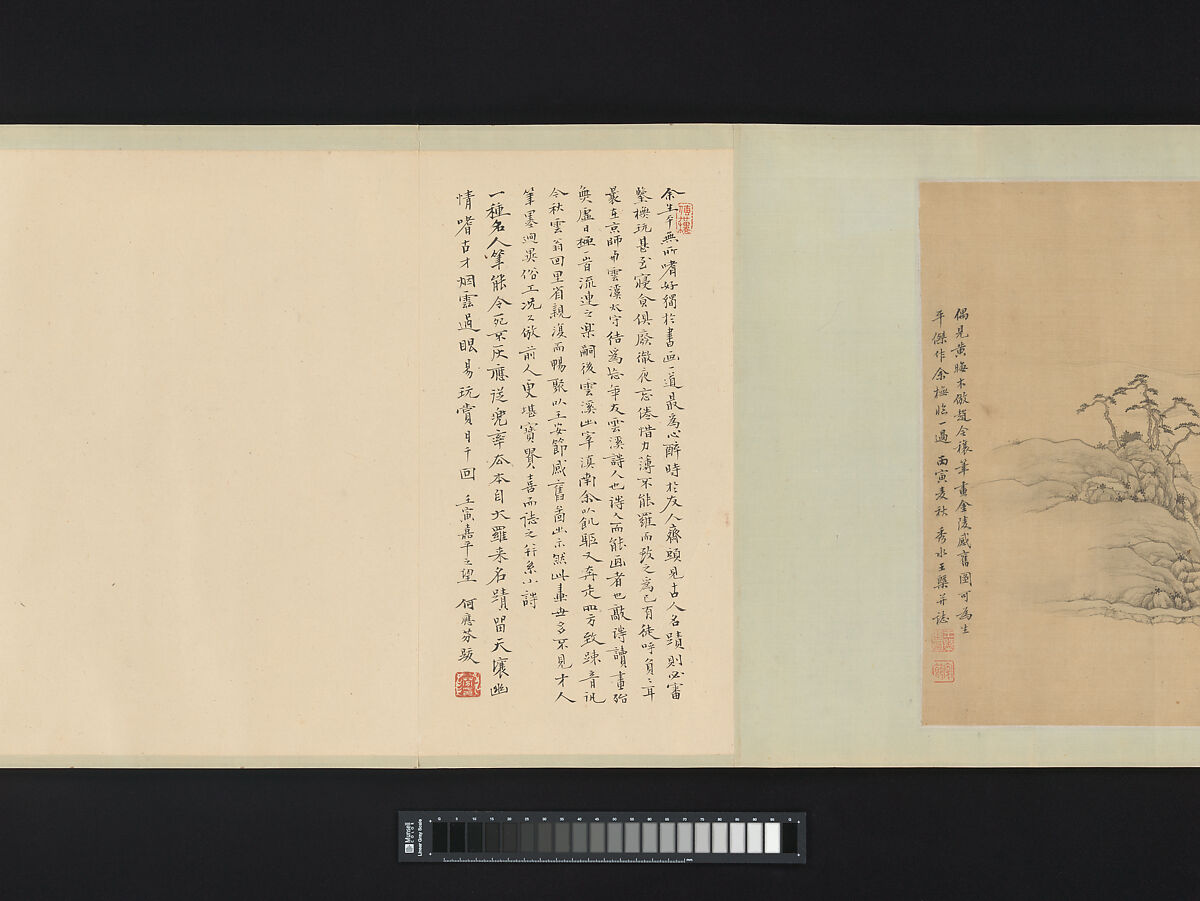 偶見黃晦木倣趙令穰筆畫金陵感舊圖可為生
平傑作余極臨一過 丙寅麦秋 秀水王槩并誌
余生平無所嗜好獨於書画一道最為心醉時於友人齋頭見古人名蹟則必審
鑒橅玩甚至寢食俱廢徹夜忘倦惜力薄不能羅而致之為己有徒呼負〻耳
曩在京師與雲溪太守結為忘年友雲溪詩人也詩人而能画者也敲詩讀畫殆
無虛日極一時流連之樂嗣後雲溪出宰滇南余以飢驅又奔走四方致疎音訊
今秋雲翁回里省親復而暢聚以王安節感舊圖出示然此畫世多不見才人
筆墨迥異俗工况又倣前人更堪寶貴喜而誌之并系小詩
一種名人筆能令死不灰應從兜率本自大羅来名蹟留天壤幽
情嗜古才烟雲過眼易玩賞日千回 壬寅嘉平之望 何應芬跋
Munsell
Color
Linear Gray Scale